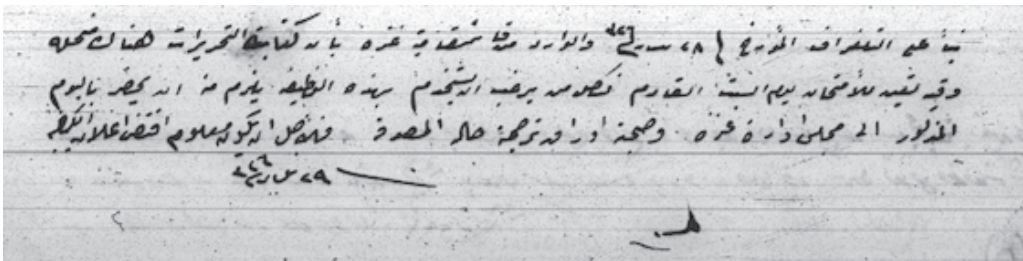 بناءً على التلغراف المؤرخ في ٢٨ مارت ٣٢٦ والوارد من قائمقامية غزه بأن كتابة التحريرات هناك منحله
وقد تعين للامتحان يوم السبت القادم فكل من يرغب ان يستخدم بهذه الوظيفه يلزم من ان يحضر باليوم
المذكور الى مجلس ادارة غزه وصحبته اوراق ترجمة حاله المصدقة فلاجل ان يكون معلوم اقتضى اعلان الكيفية
٢٩ مارت ٣٢٦